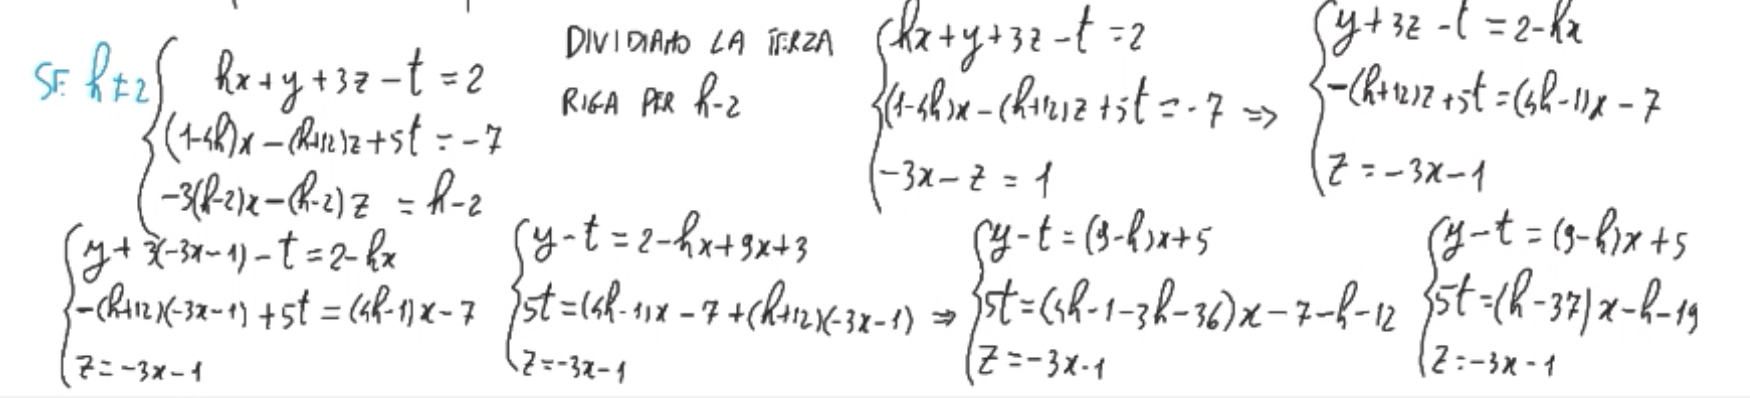 SE h≠2 { hx+y+3z-t=2
(1-4h)x-(h+12)z+5t=-7
-3(h-2)x-(h-2)z = h-2
DIVIDIAMO LA TERZA
RIGA PER h-2
{ hx+y+3z-t=2
(1-4h)x-(h+12)z+5t=-7 =>
-3x-z=1
{ y+3z-t=2-hx
-(h+12)z+5t=(4h-1)x-7
z=-3x-1
{ y+3(-3x-1)-t=2-hx
-(h+12)(-3x-1)+5t=(4h-1)x-7
z=-3x-1
{ y-t=2-hx+9x+3
5t=(4h-1)x-7+(h+12)(-3x-1) =>
z=-3x-1
{ y-t=(9-h)x+5
5t=(4h-1-3h-36)x-7-h-12
z=-3x-1
{ y-t=(9-h)x+5
5t=(h-37)x-h-19
z=-3x-1